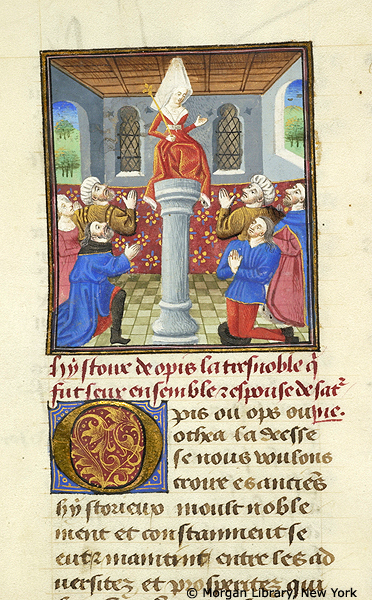 hystoire de opis la tresnoble q̃
fut seur ensemble & espouse de satr̃
Opis ou ops ou que-
othea la deesse
se nous voulons
croire es anciẽs
hystorieux moult noble
ment et constamment se
entremaintint entre les ad
versitez et prosperitez qui
© Morgan Library, New York